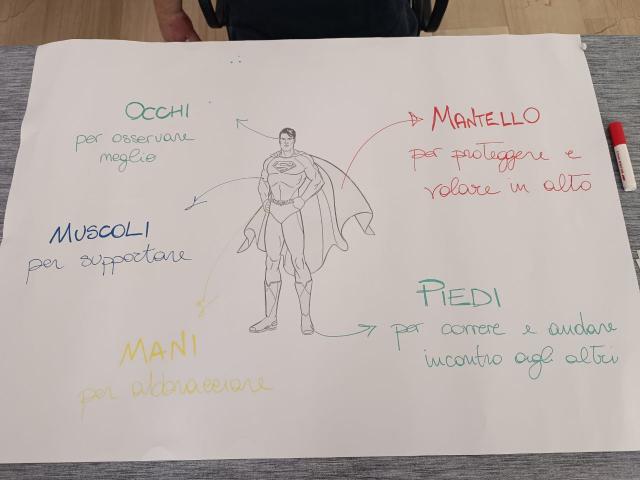 OCCHI
per osservare
meglio
MANTELLO
per proteggere e
volare in alto
MUSCOLI
per supportare
MANI
per abbracciare
PIEDI
per correre e andare
incontro agli altri